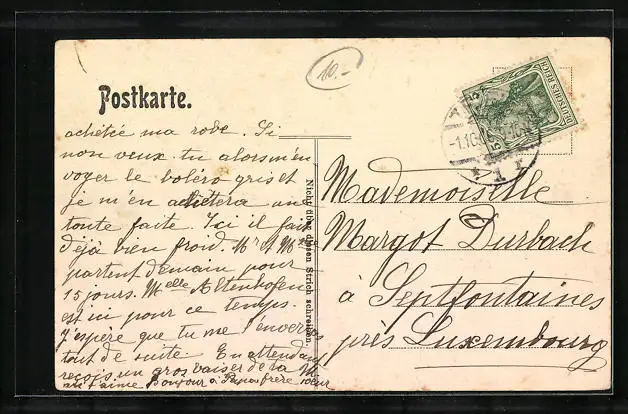 10.-
Postkarte.
DEUTSCHES REICH
5
achétée ma robe. Si
non veux-tu alors m'en
voyer le boléro gris et
je m'en achetera une
toute faite. Ici il fait
déjà bien froid. Mr et Mme
partent demain pour
15 jours. Melle Altenhofen
est ici pour ce temps.
J'espère que tu me l'enverras
tout de suite. En attendant
reçois un gros baiser de ta
qui t'aime Bonjour à Papa frère soeur
Nicht über diesen Strich schreiben.
Mademoiselle
Margot Durbach
à Septfontaines
près Luxembourg